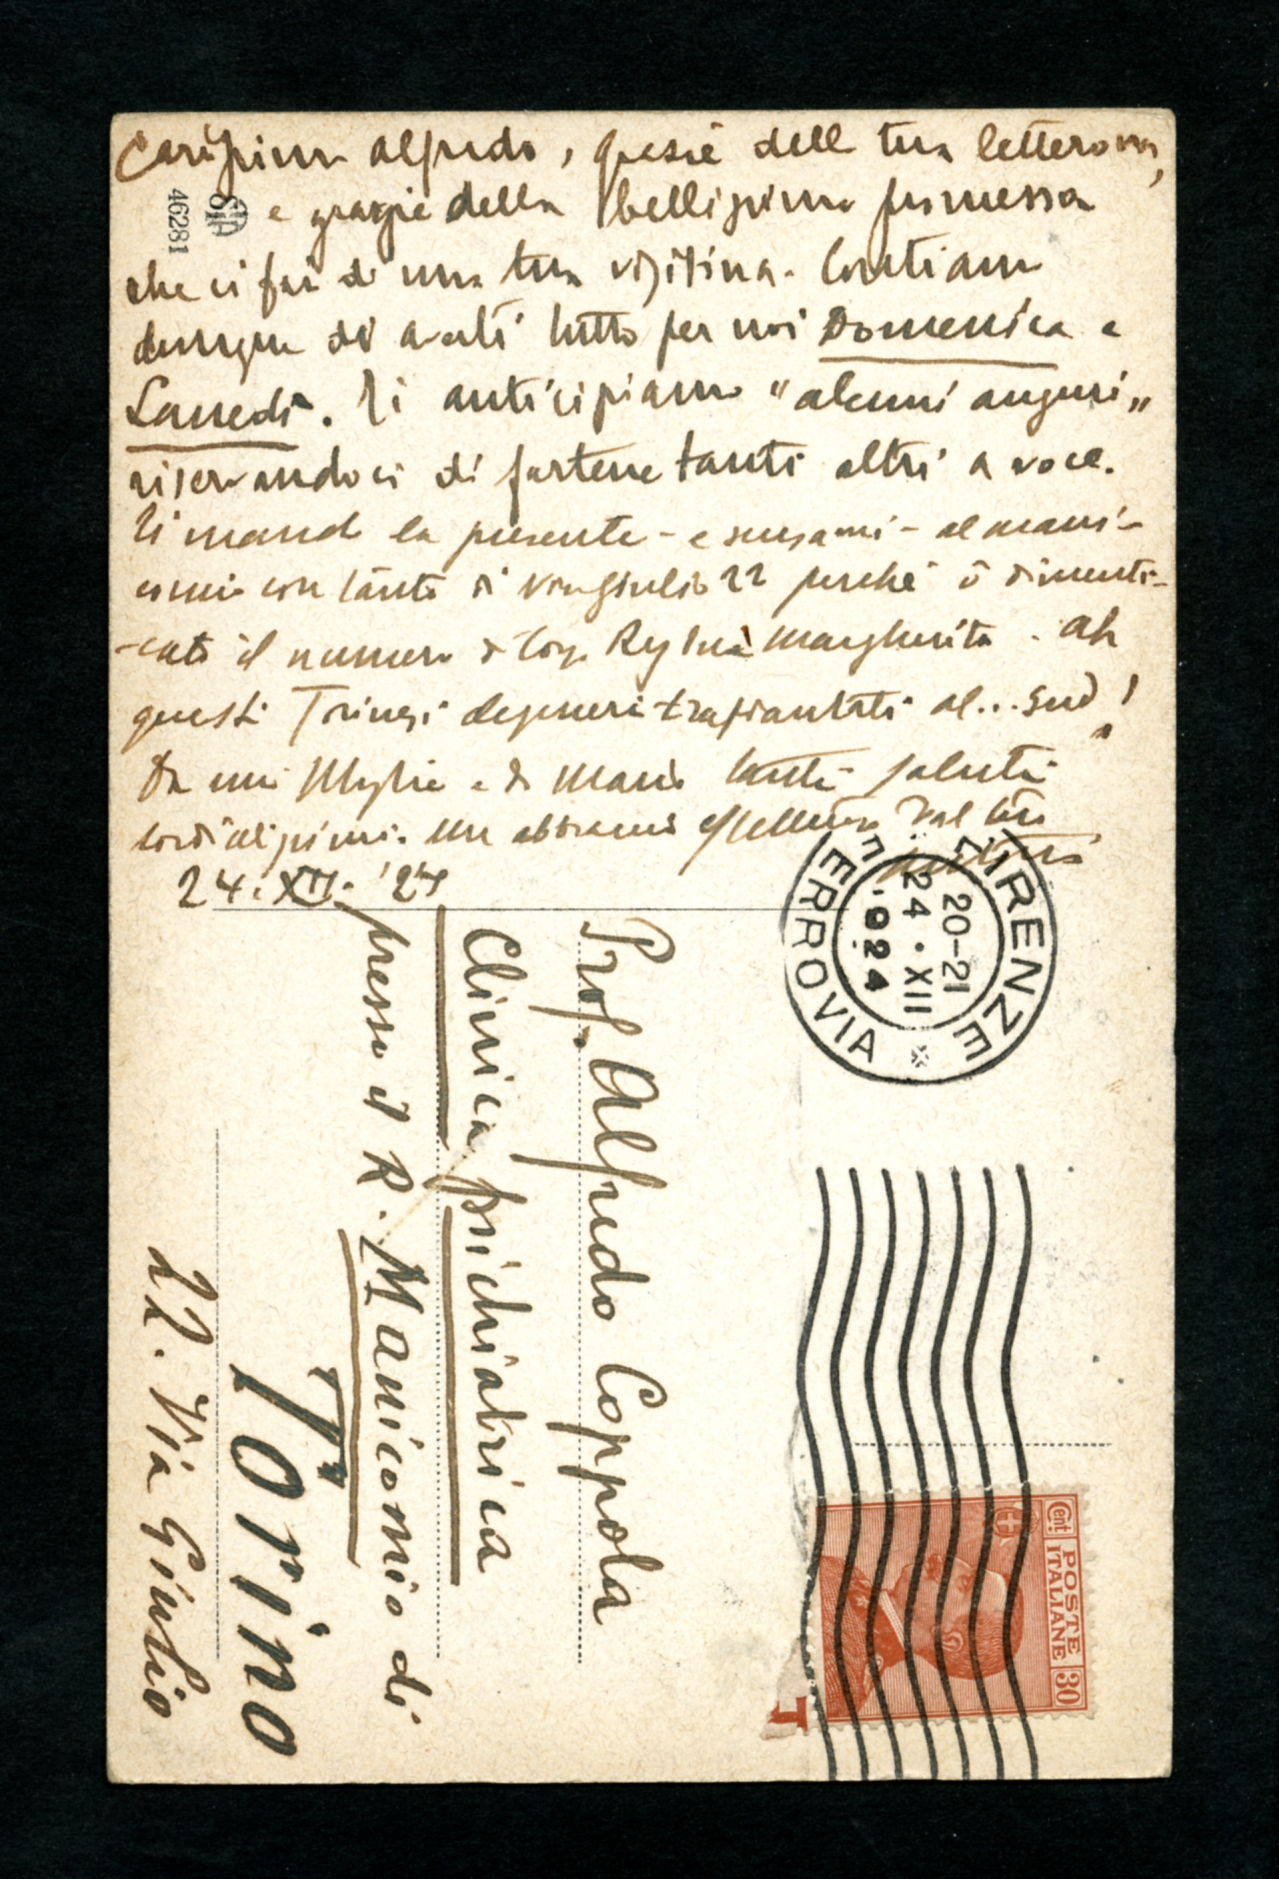 Carissimo Alfredo, grazie dell tua letterona,
e grazie della bellissima promessa
che ci fai di una tua visitina. Contiamo
dunque di averti tutto per noi Domenica e
Lunedì. Ti anticipiamo "alcuni auguri"
riservandoci di fartene tanti altri a voce.
Ti mando la presente - e scusami - al mani-
comio con tanto di via Giulio 22 perché ò dimenti-
-cato il numero di Corso Regina Margherita. Ah
questi Torinesi degeneri trapiantati al... Sud!
Da mia Moglie e da Mario tanti saluti
cordialissimi. Un abbraccio dal tuo
24. XII. '24
46281
Prof. Alfredo Coppola
Clinica psichiatrica
presso il R. Manicomio di
Torino
22. Via Giulio
FIRENZE
FERROVIA
20-21
24 • XII
924
POSTE ITALIANE
Cent 30